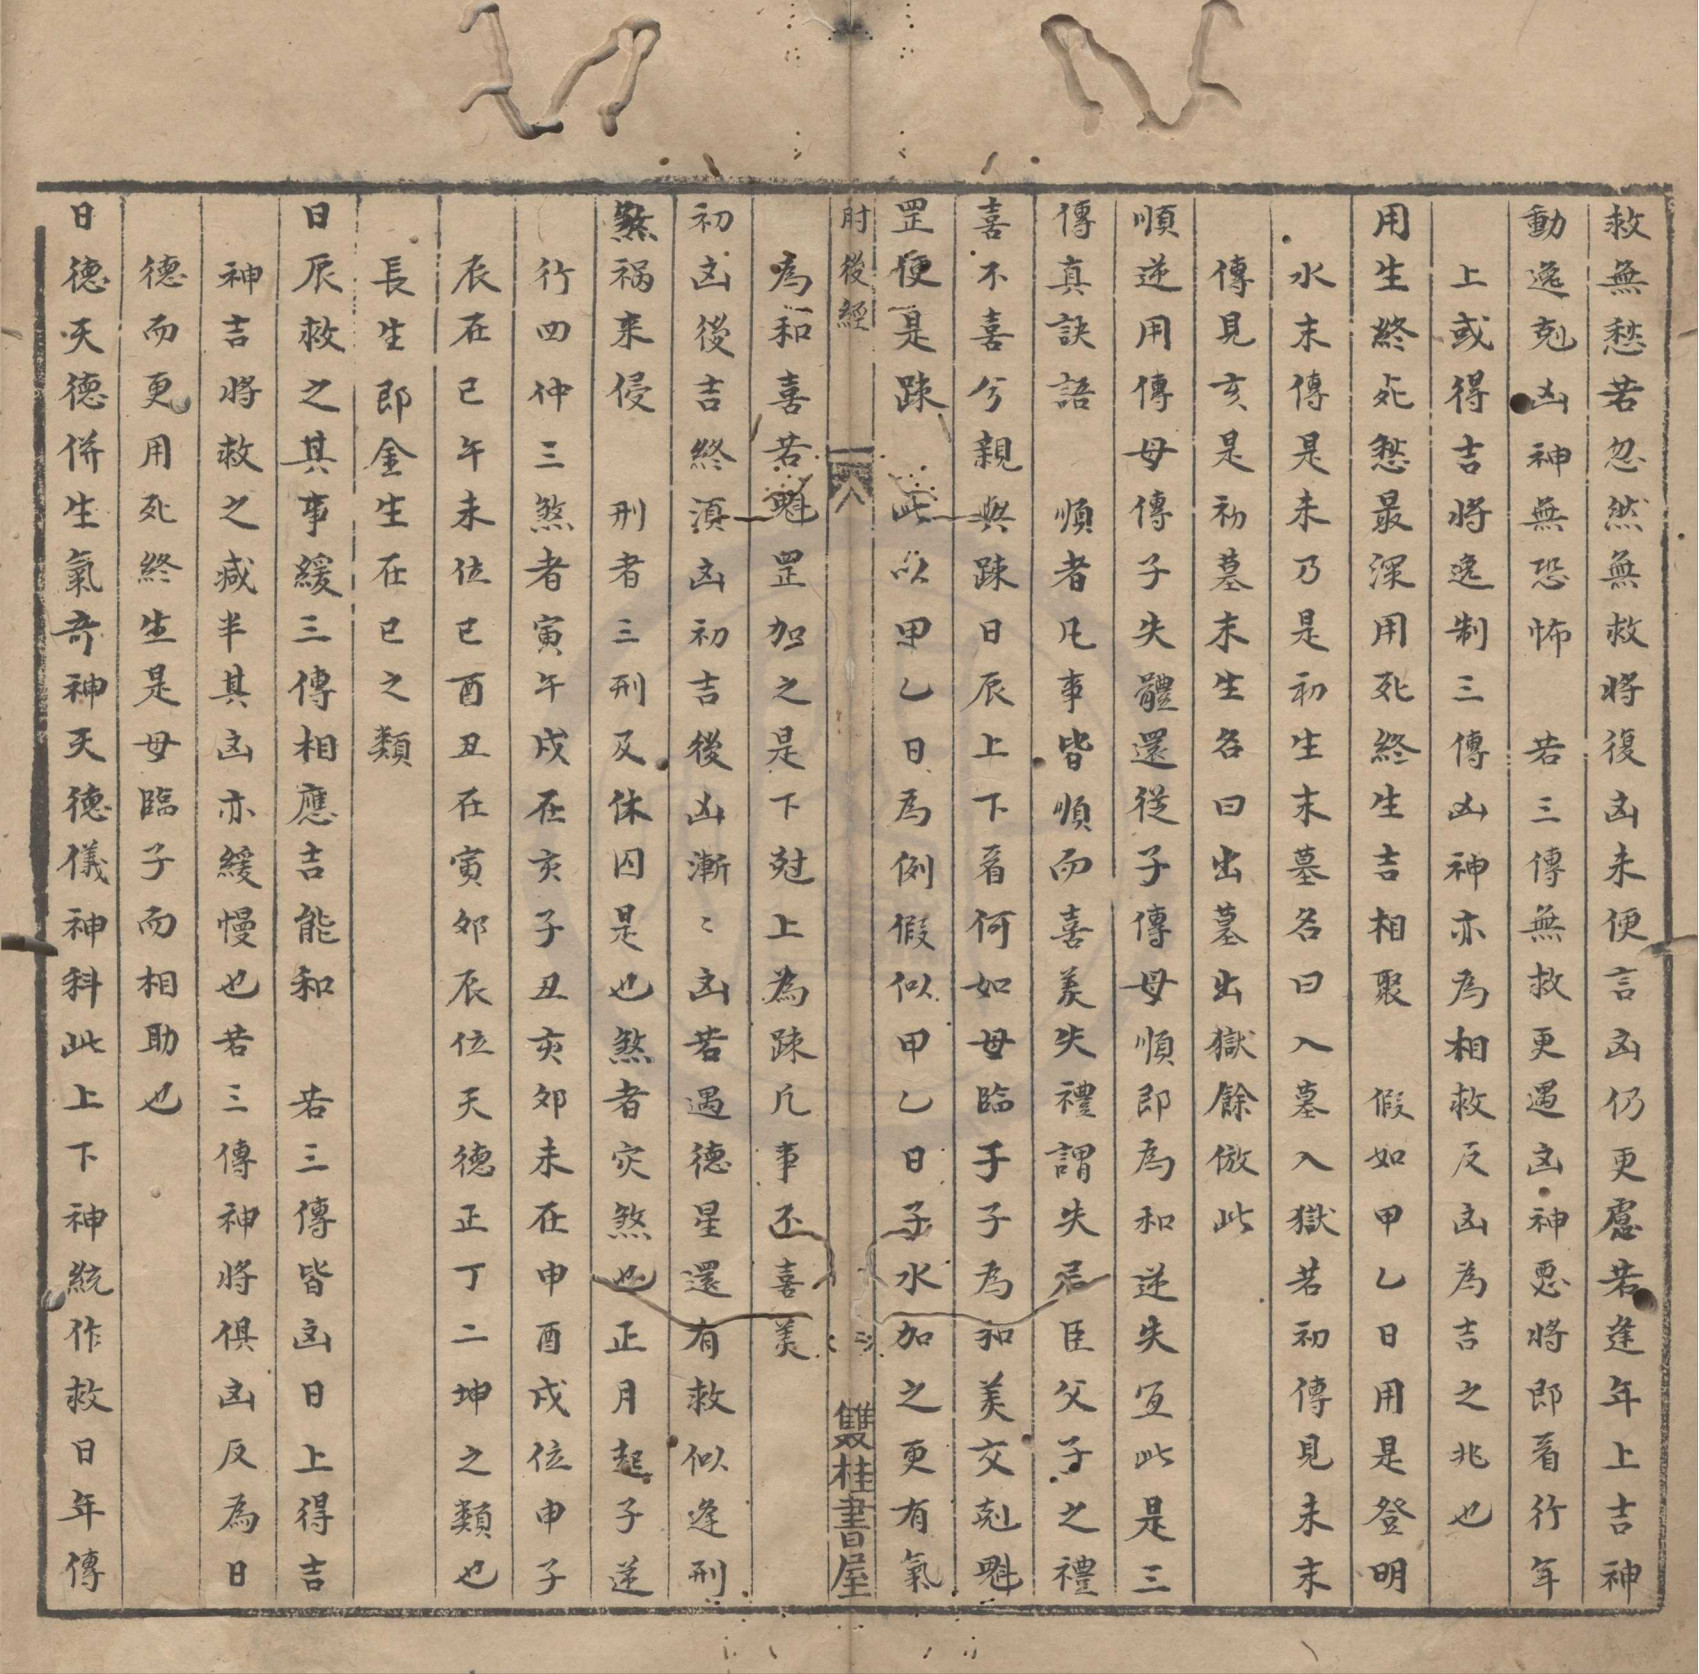 救無愁若忽然無救將復凶未便言凶仍更慮若逢年上吉神
動逸尅凶神無恐怖　若三傳無救更遇凶神惡將即看行年
上或得吉將逸制三傳凶神亦為相救反凶為吉之兆也
用生終死愁最深用死終生吉相聚　假如甲乙日用是登明
水末傳是未乃是初生末墓名曰入墓入獄若初傳見未末
傳見亥是初墓末生名曰出墓出獄餘倣此
順逆用傳母傳子失體還從子傳母順即為和逆失宜此是三
傳真訣語　順者凡事皆順而喜美失禮謂失君臣父子之禮
喜不喜兮親與踈日辰上下看何如母臨子子為和美交尅魁
罡便是踈　此以甲乙日為例假似甲乙日子水加之更有氣
肘後經　八　雙桂書屋
為和喜若魁罡加之是下尅上為踈凡事不喜美
初凶後吉終須凶初吉後凶漸〻凶若遇德星還有救似逢刑
煞禍来侵　刑者三刑及休囚是也煞者灾煞也正月起子逆
行四仲三煞者寅午戌在亥子丑亥卯未在申酉戌位申子
辰在巳午未位巳酉丑在寅卯辰位天德正丁二坤之類也
長生即金生在巳之類
日辰救之其事緩三傳相應吉能和　若三傳皆凶日上得吉
神吉將救之咸半其凶亦緩慢也若三傳神將俱凶反為日
德而更用死終生是母臨子而相助也
日德天德併生氣奇神天德儀神科此上下神統作救日年傳